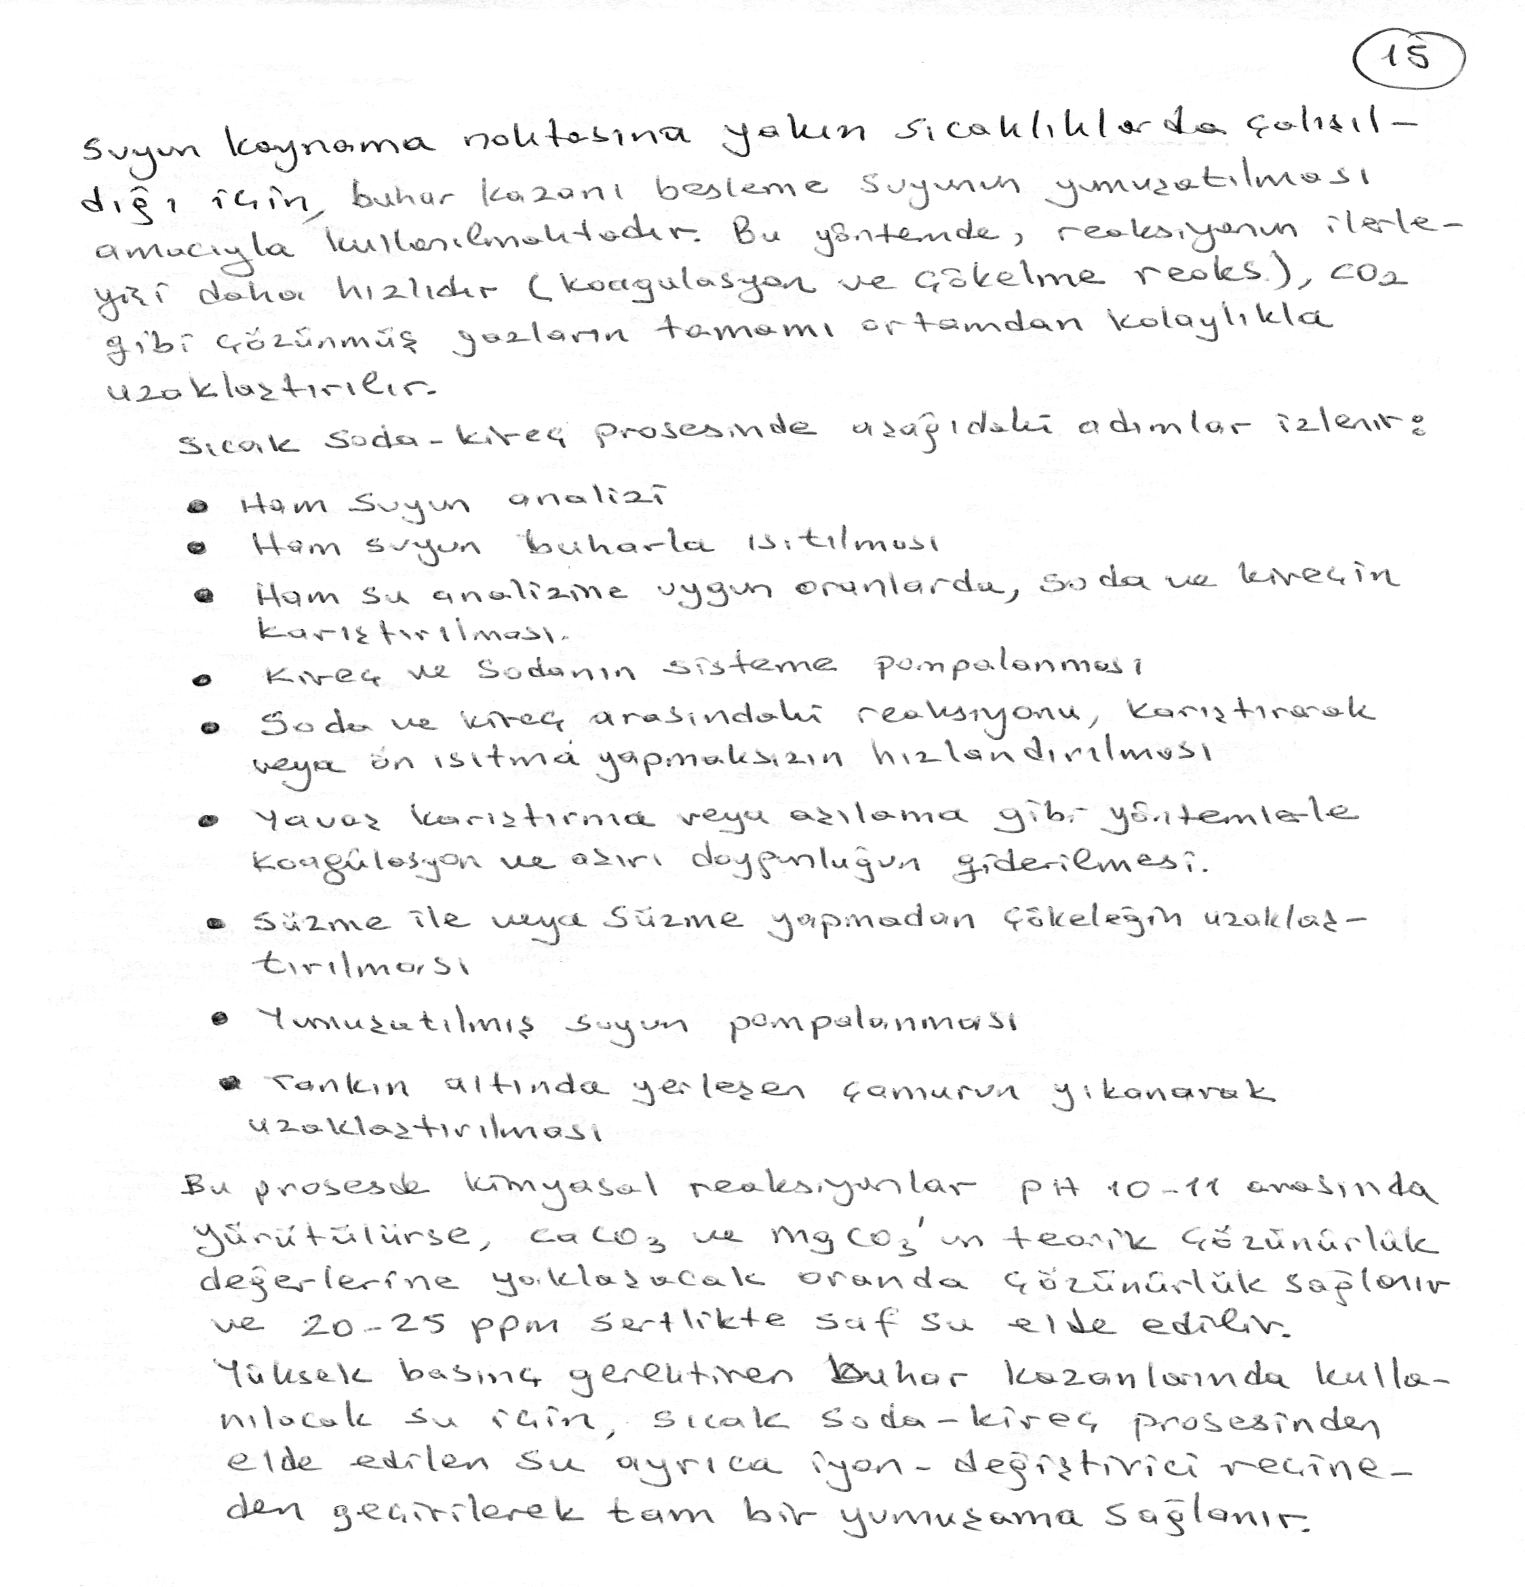 15
Suyun kaynama noktasına yakın sıcaklıklarda çalışıl-
dığı için, buhar kazanı besleme suyunun yumuşatılması
amacıyla kullanılmaktadır. Bu yöntemde, reaksiyonun ilerle-
yişi daha hızlıdır (koagulasyon ve çökelme reaks.), CO2
gibi çözünmüş gazların tamamı ortamdan kolaylıkla
uzaklaştırılır.
Sıcak soda-kireç prosesinde aşağıdaki adımlar izlenir:
• Ham suyun analizi
• Ham suyun buharla ısıtılması
• Ham su analizine uygun oranlarda, soda ve kireçin
karıştırılması.
• Kireç ve sodanın sisteme pompalanması
• Soda ve kireç arasındaki reaksiyonu, karıştırarak
veya ön ısıtma yapmaksızın hızlandırılması
• Yavaş karıştırma veya aşılama gibi yöntemlerle
koagülasyon ve aşırı doygunluğun giderilmesi.
• Süzme ile veya süzme yapmadan çökeleğin uzaklaş-
tırılması
• Yumuşatılmış suyun pompalanması
• Tankın altında yerleşen çamurun yıkanarak
uzaklaştırılması
Bu prosesde kimyasal reaksiyonlar pH 10-11 arasında
yürütülürse, CaCO3 ve MgCO3'ın teorik çözünürlük
değerlerine yaklaşacak oranda çözünürlük sağlanır
ve 20-25 ppm sertlikte saf su elde edilir.
Yüksek basınç gerektiren buhar kazanlarında kulla-
nılacak su için, sıcak soda-kireç prosesinden
elde edilen su ayrıca iyon-değiştirici reçine-
den geçirilerek tam bir yumuşama sağlanır.